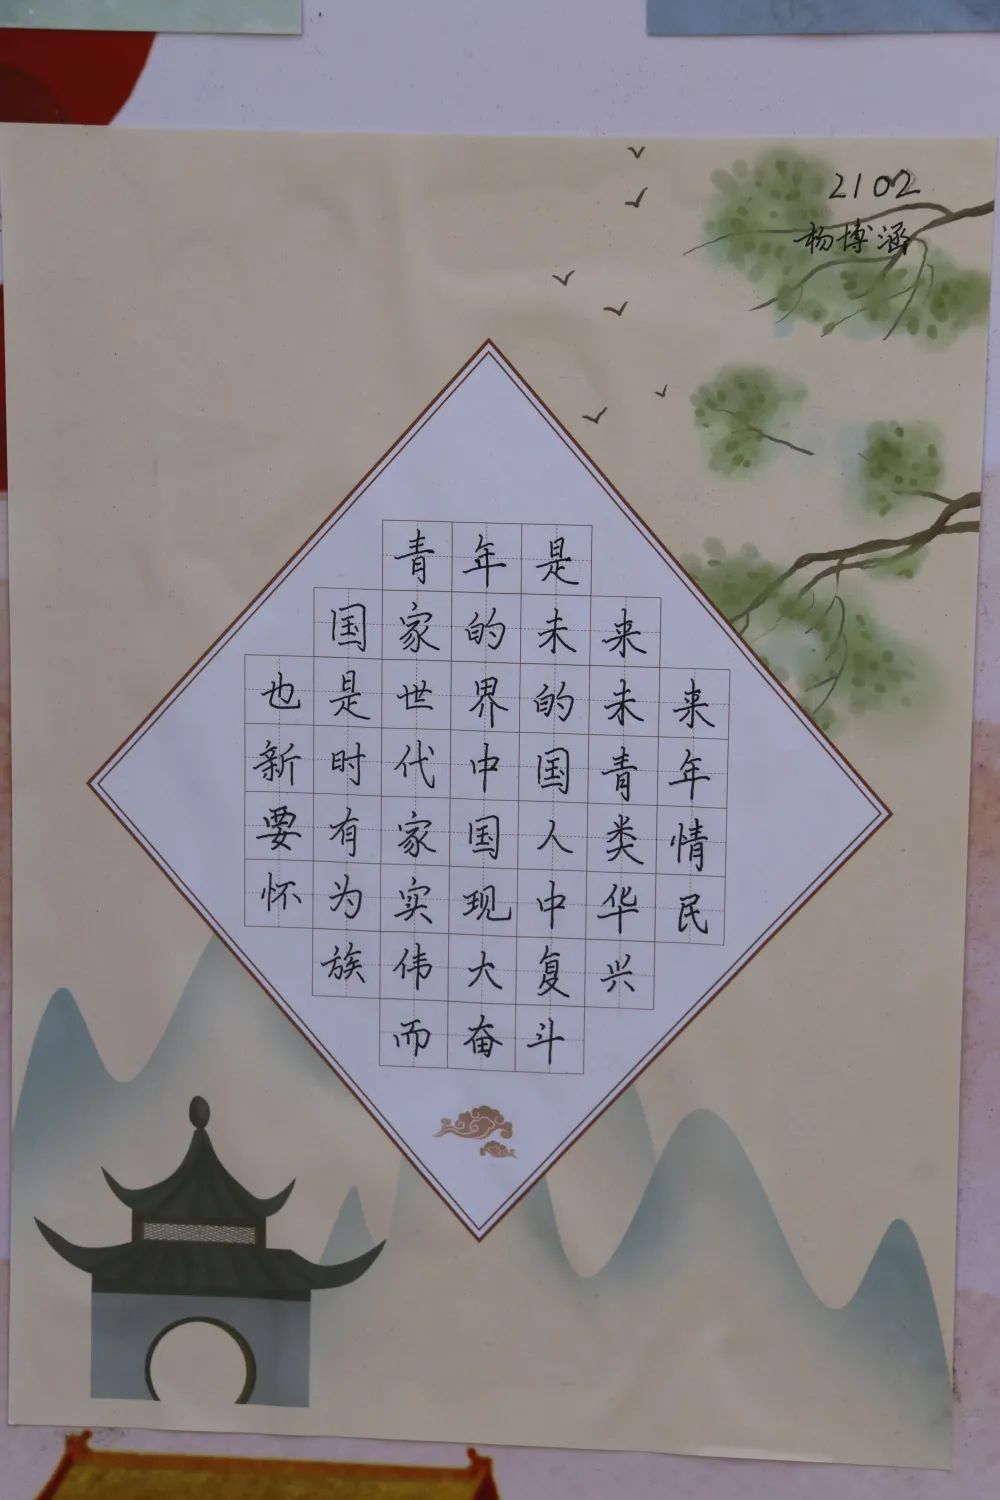 2102
杨博涵
青年是
国家的未来
也是世界的未来
新时代中国青年
要有家国人类情
怀为实现中华民
族伟大复兴
而奋斗